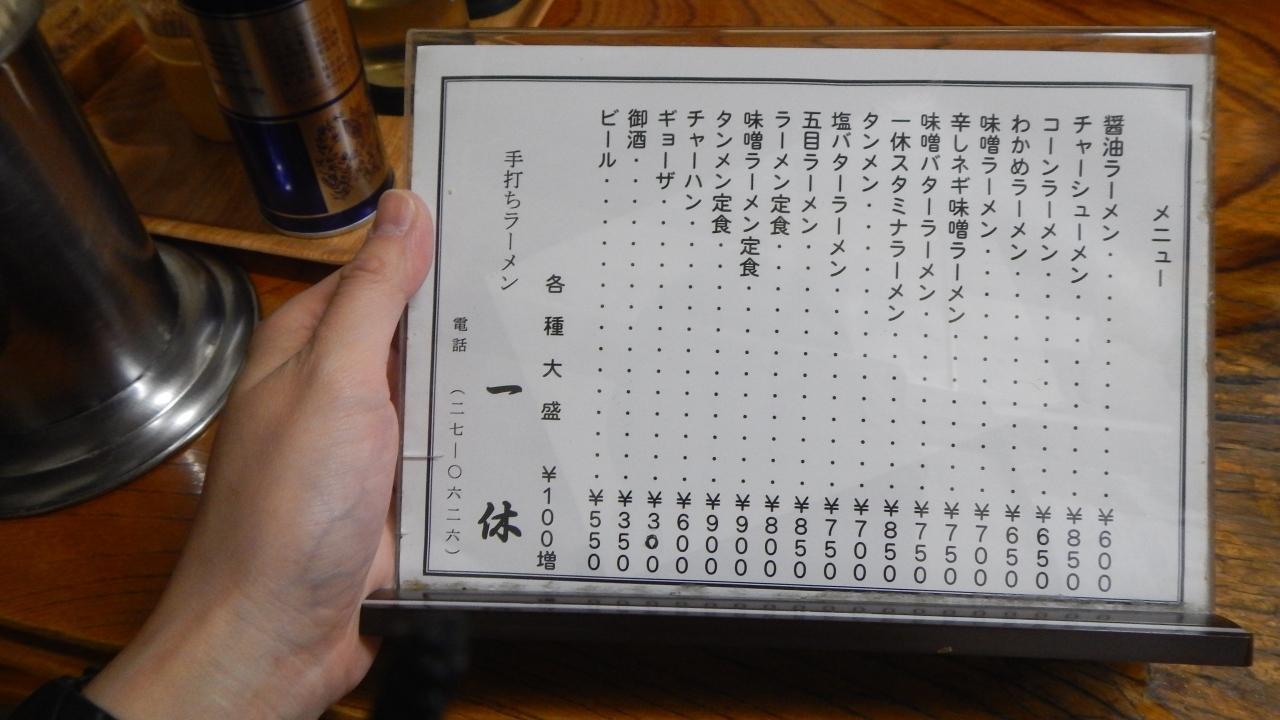 メニュー
醤油ラーメン・・・・・・・・・¥600
チャーシューメン・・・・・・・・¥850
コーンラーメン・・・・・・・・・¥650
わかめラーメン・・・・・・・・・¥650
味噌ラーメン・・・・・・・・・¥700
辛しネギ味噌ラーメン・・・・・・・¥750
味噌バターラーメン・・・・・・・¥750
一休スタミナラーメン・・・・・・・¥850
タンメン・・・・・・・・・・・¥700
塩バターラーメン・・・・・・・・¥750
五目ラーメン・・・・・・・・・¥850
ラーメン定食・・・・・・・・・¥800
味噌ラーメン定食・・・・・・・・¥900
タンメン定食・・・・・・・・・¥900
チャーハン・・・・・・・・・・¥600
ギョーザ・・・・・・・・・・・¥300
御酒・・・・・・・・・・・・¥350
ビール・・・・・・・・・・・・¥550
各種大盛 ¥100増
手打ちラーメン 一休
電話 (二七―〇六二六)